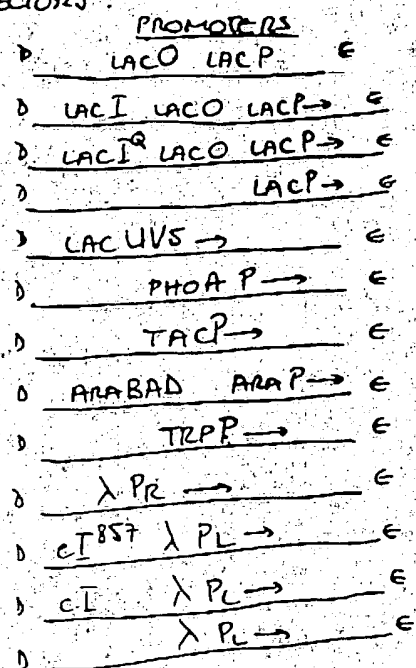 PROMOTERS
D LACO LACP E
D LACI LACO LACP→ E
D LACI^Q LACO LACP→ E
D LACP→ E
D LAC UV5 → E
D PHOA P → E
D TACP→ E
D ARABAD ARAP→ E
D TRPP → E
D λ PR → E
D cI^857 λ PL → E
D cI λ PL → E
D λ PL → E